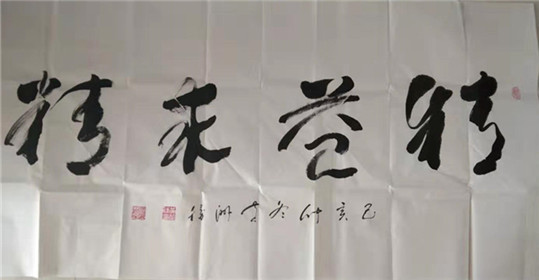 精益求精
己亥仲冬